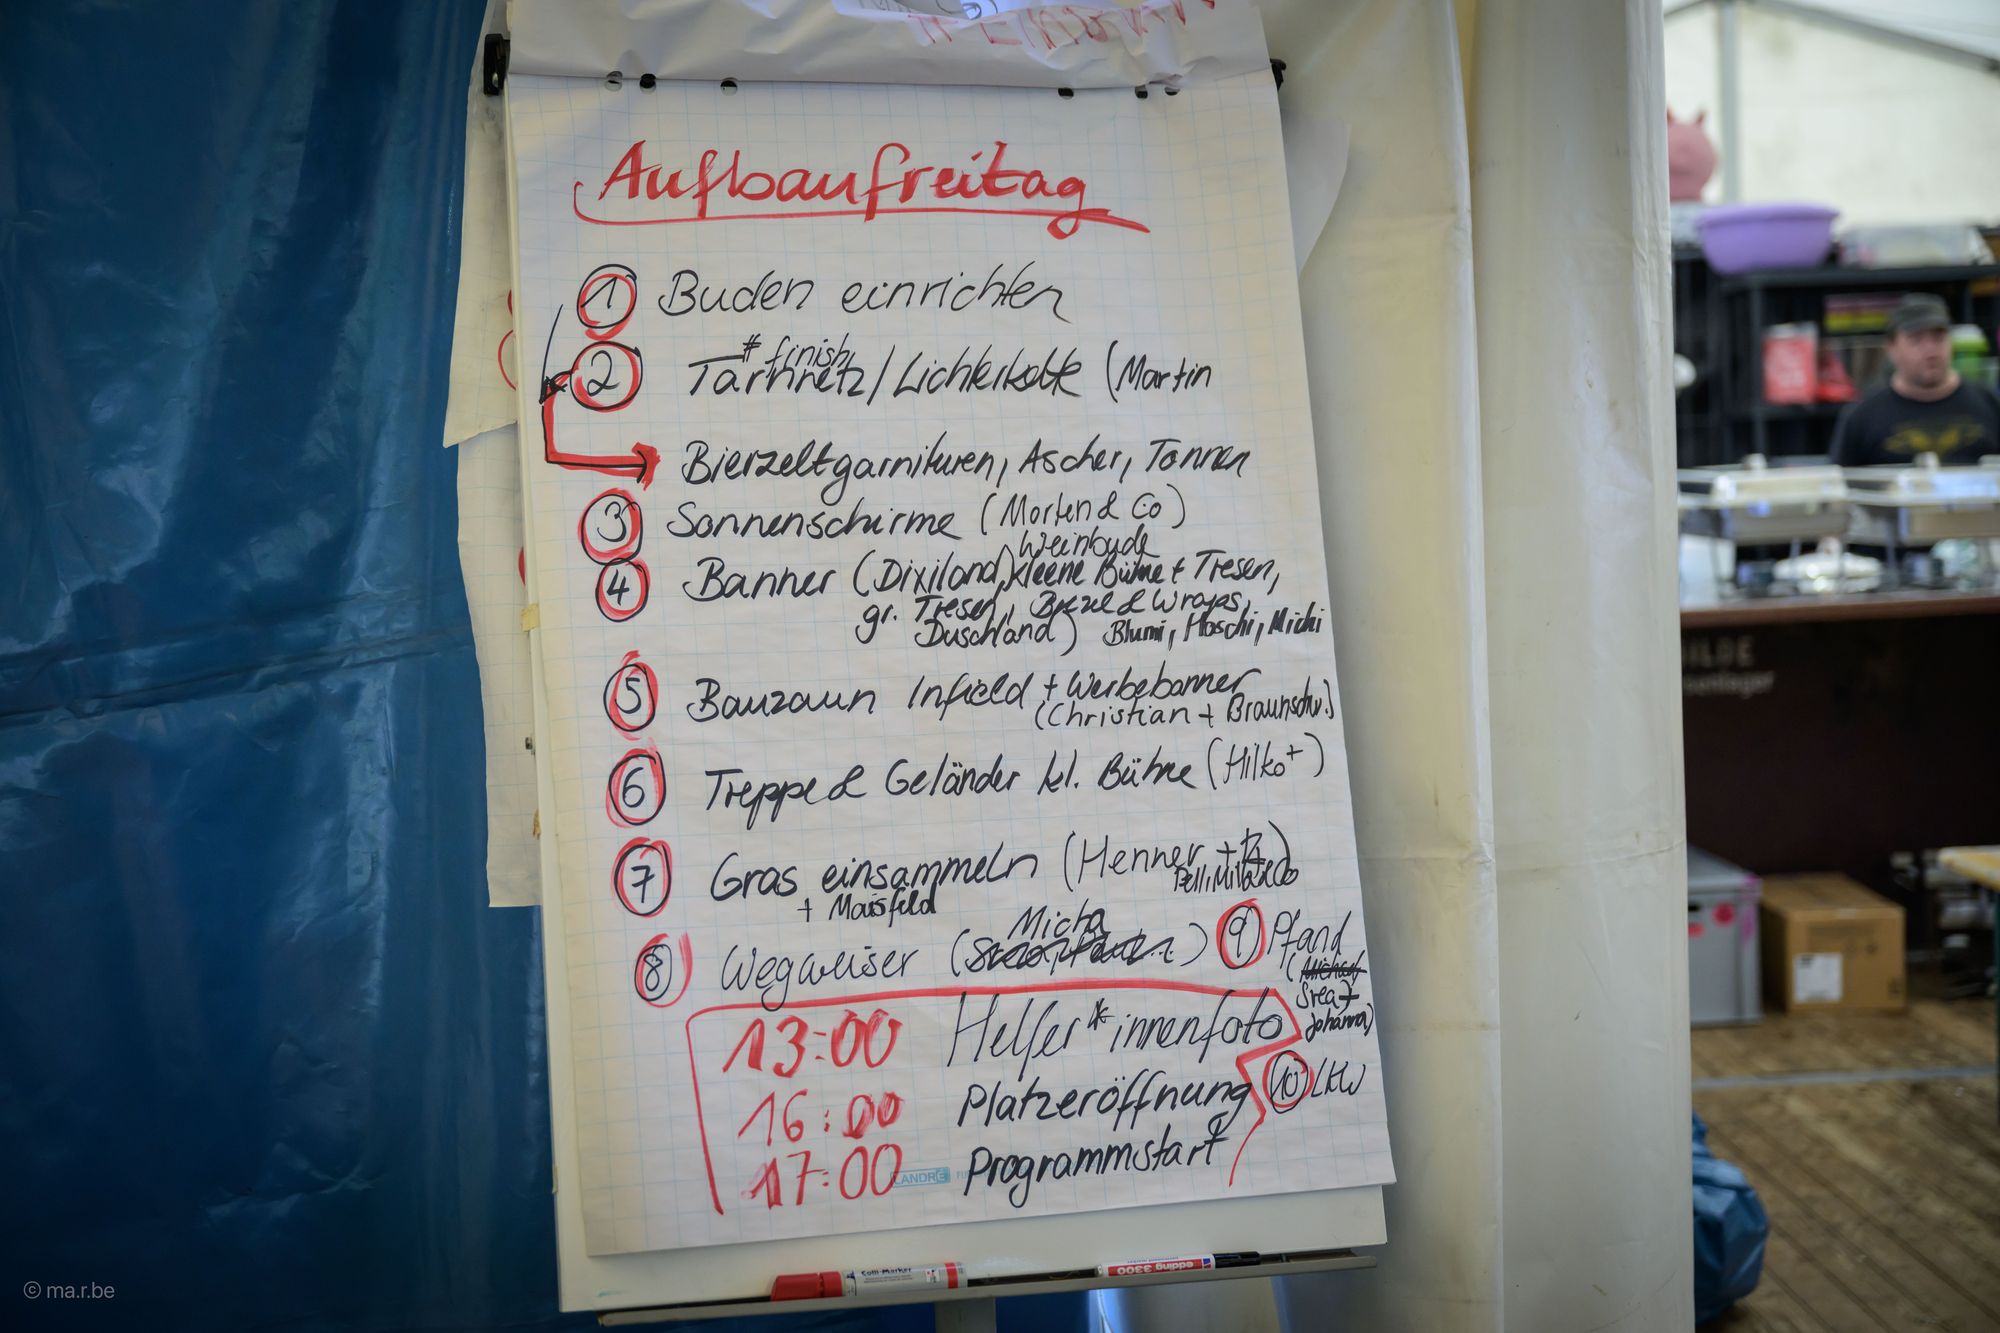 Aufbaufreitag
1 Buden einrichten
# finish
2 Tarnnetz/Lichterkette (Martin
Bierzeltgarnituren, Ascher, Tonnen
3 Sonnenschirme (Morten & Co)
Weinbude
4 Banner (Dixiland, kleene Bühne + Tresen,
gr. Tresen, & Wraps,
Duschland) Blumi, Haschi, Michi
5 Bauzaun Infield + Werbebanner
(Christian + Braunschw.)
6 Treppe & Geländer kl. Bühne (Hilko+)
7 Gras einsammeln (Henner +
+ Maisfeld
Micha
8 Wegweiser ( )
9 Pfand
(Michael
Svea +
Johanna)
13:00 Helfer*innenfoto
10 LKW
16:00 Platzeröffnung
17:00 Programmstart
LANDRÉ
Colli-Marker
edding 3300
© ma.r.be